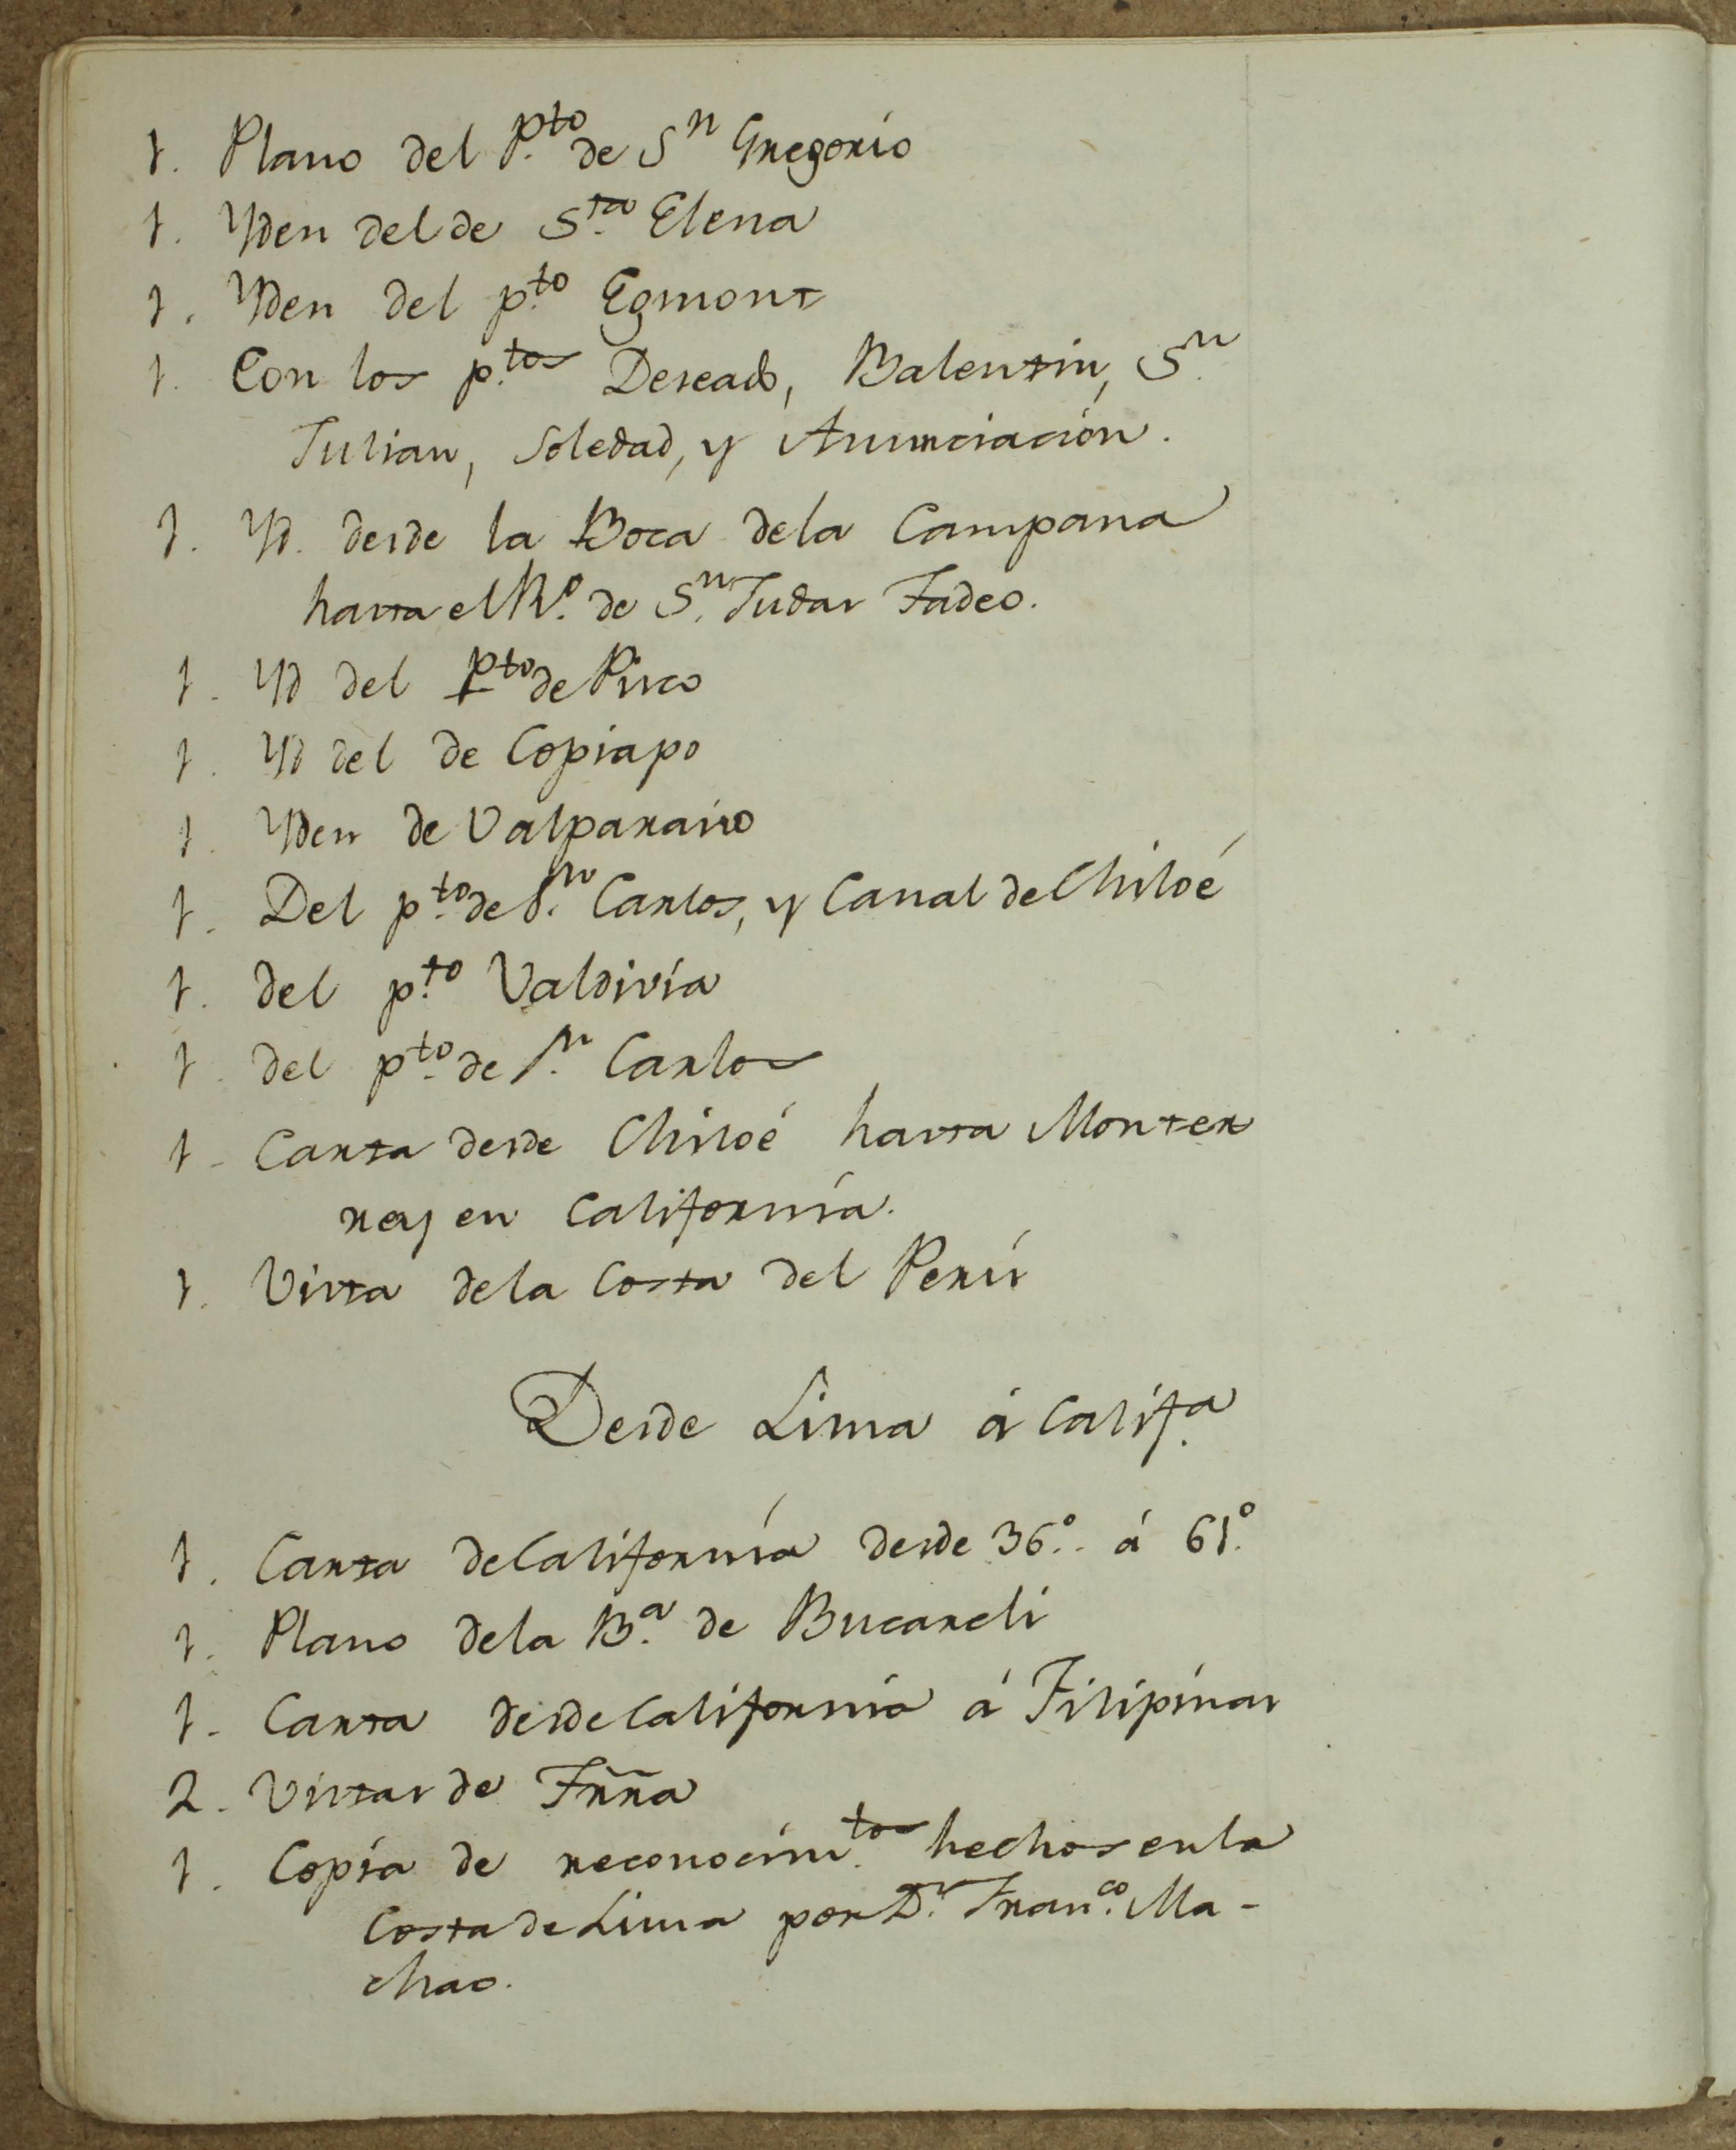 1. Plano del P.to de Sn Gregorio
1. Yden del de S.ta Elena
1. Yden del p.to Egmont
1. Con los p.tos Deseado, Balentin, S.n
Julian, Soledad, y Anunciación.
1. Yd. desde la Boca dela Campana
hasta el R.o de S.n Judas Tadeo.
1. Yd del Pto de Pisco
1. Yd del de Copiapo
1. Yden de Valparaiso
1. Del p.to de S.n Carlos, y Canal de Chiloé
1. del p.to Valdivia
1. del p.to de S.n Carlos
1. Carta desde Chiloé hasta Monter
rey en California.
1. Vista dela Costa del Perú
Desde Lima á Calif.a
1. Carta de California desde 36.o á 61.o
1. Plano dela B.a de Bucareli
1. Carta desde California á Filipinas
2. Vistas de Trra
1. Copia de reconocim.tos hechos en la
Costa de Lima por D.n Fran.co Ma-
chao.